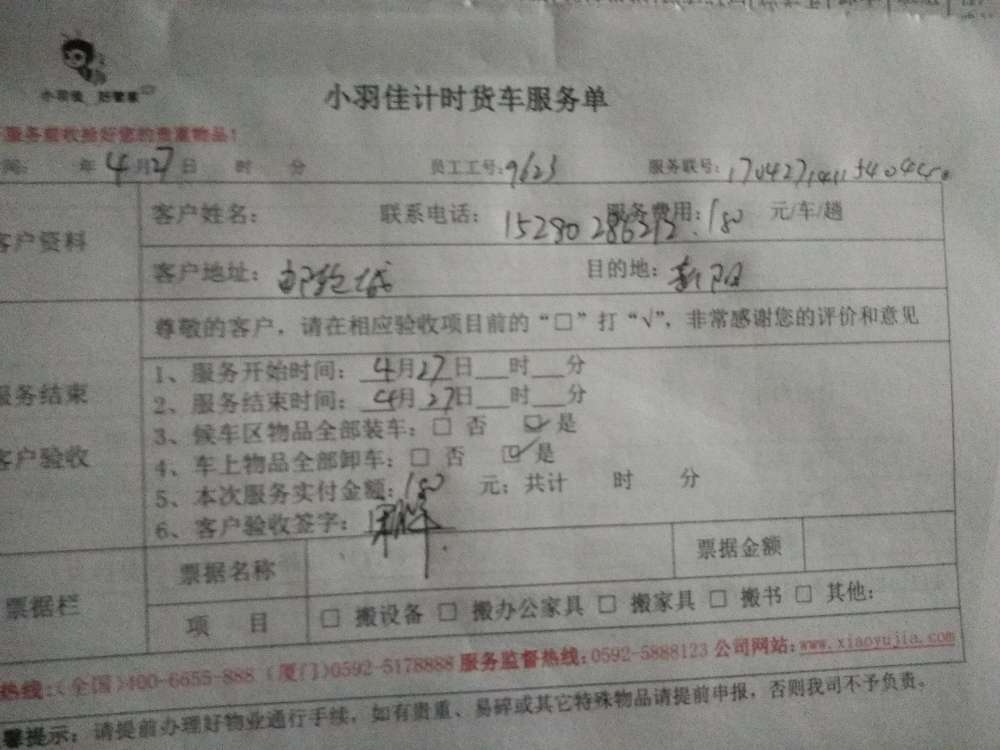 小羽佳 好管家
小羽佳计时货车服务单
服务前收拾好您的贵重物品!
间: 年4月27日 时 分 员工工号:9623 服务联号:
客户资料
客户姓名: 联系电话: 服务费用:180 元/车/趟
客户地址: 目的地:新阳
服务结束
客户验收
尊敬的客户,请在相应验收项目前的“□”打“√”,非常感谢您的评价和意见
1、服务开始时间:4月27日___时___分
2、服务结束时间:4月27日___时___分
3、候车区物品全部装车:□ 否 ☑是
4、车上物品全部卸车:□ 否 ☑是
5、本次服务实付金额:180 元;共计 时 分
6、客户验收签字:
票据栏
票据名称 票据金额
项 目 □ 搬设备 □ 搬办公家具 □ 搬家具 □ 搬书 □ 其他:
热线:(全国)400-6655-888 (厦门)0592-5178888 服务监督热线:0592-5888123 公司网站:www.xiaoyujia.com
馨提示:请提前办理好物业通行手续,如有贵重、易碎或其它特殊物品请提前申报,否则我司不予负责。